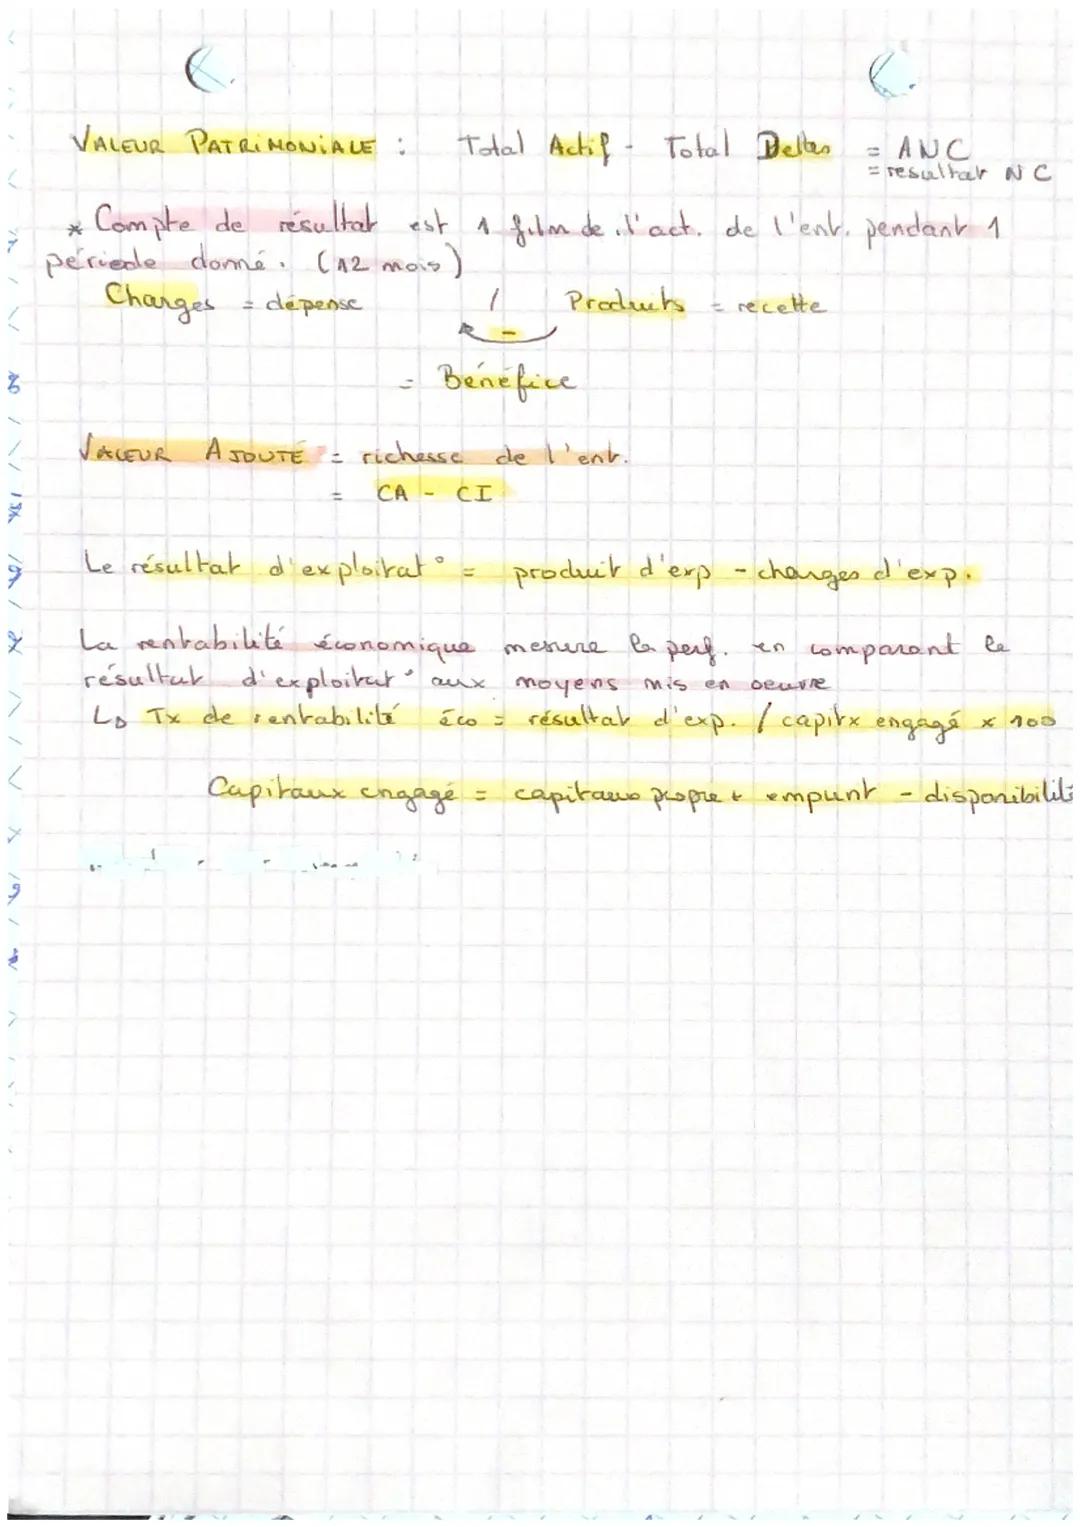 VALEUR PATRIMONIALE : Total Actif - Total Dettes = ANC
= resultat NC
* Compte de résultat est 1 film de l'act. de l'ent. pendant 1
période donné. (12 mois)
Charges = dépense / Produits = recette
-
= Bénéfice
VALEUR AJOUTÉ = richesse de l'ent.
= CA - CI
Le résultat d'exploitat° = produit d'exp - charges d'exp.
La rentabilité économique mesure la perf. en comparant le
résultat d'exploitat° aux moyens mis en oeuvre
↳ Tx de rentabilité éco = résultat d'exp. / capitx engagé x 100
Capitaux engagé = capitaux propre + empunt - disponibilité